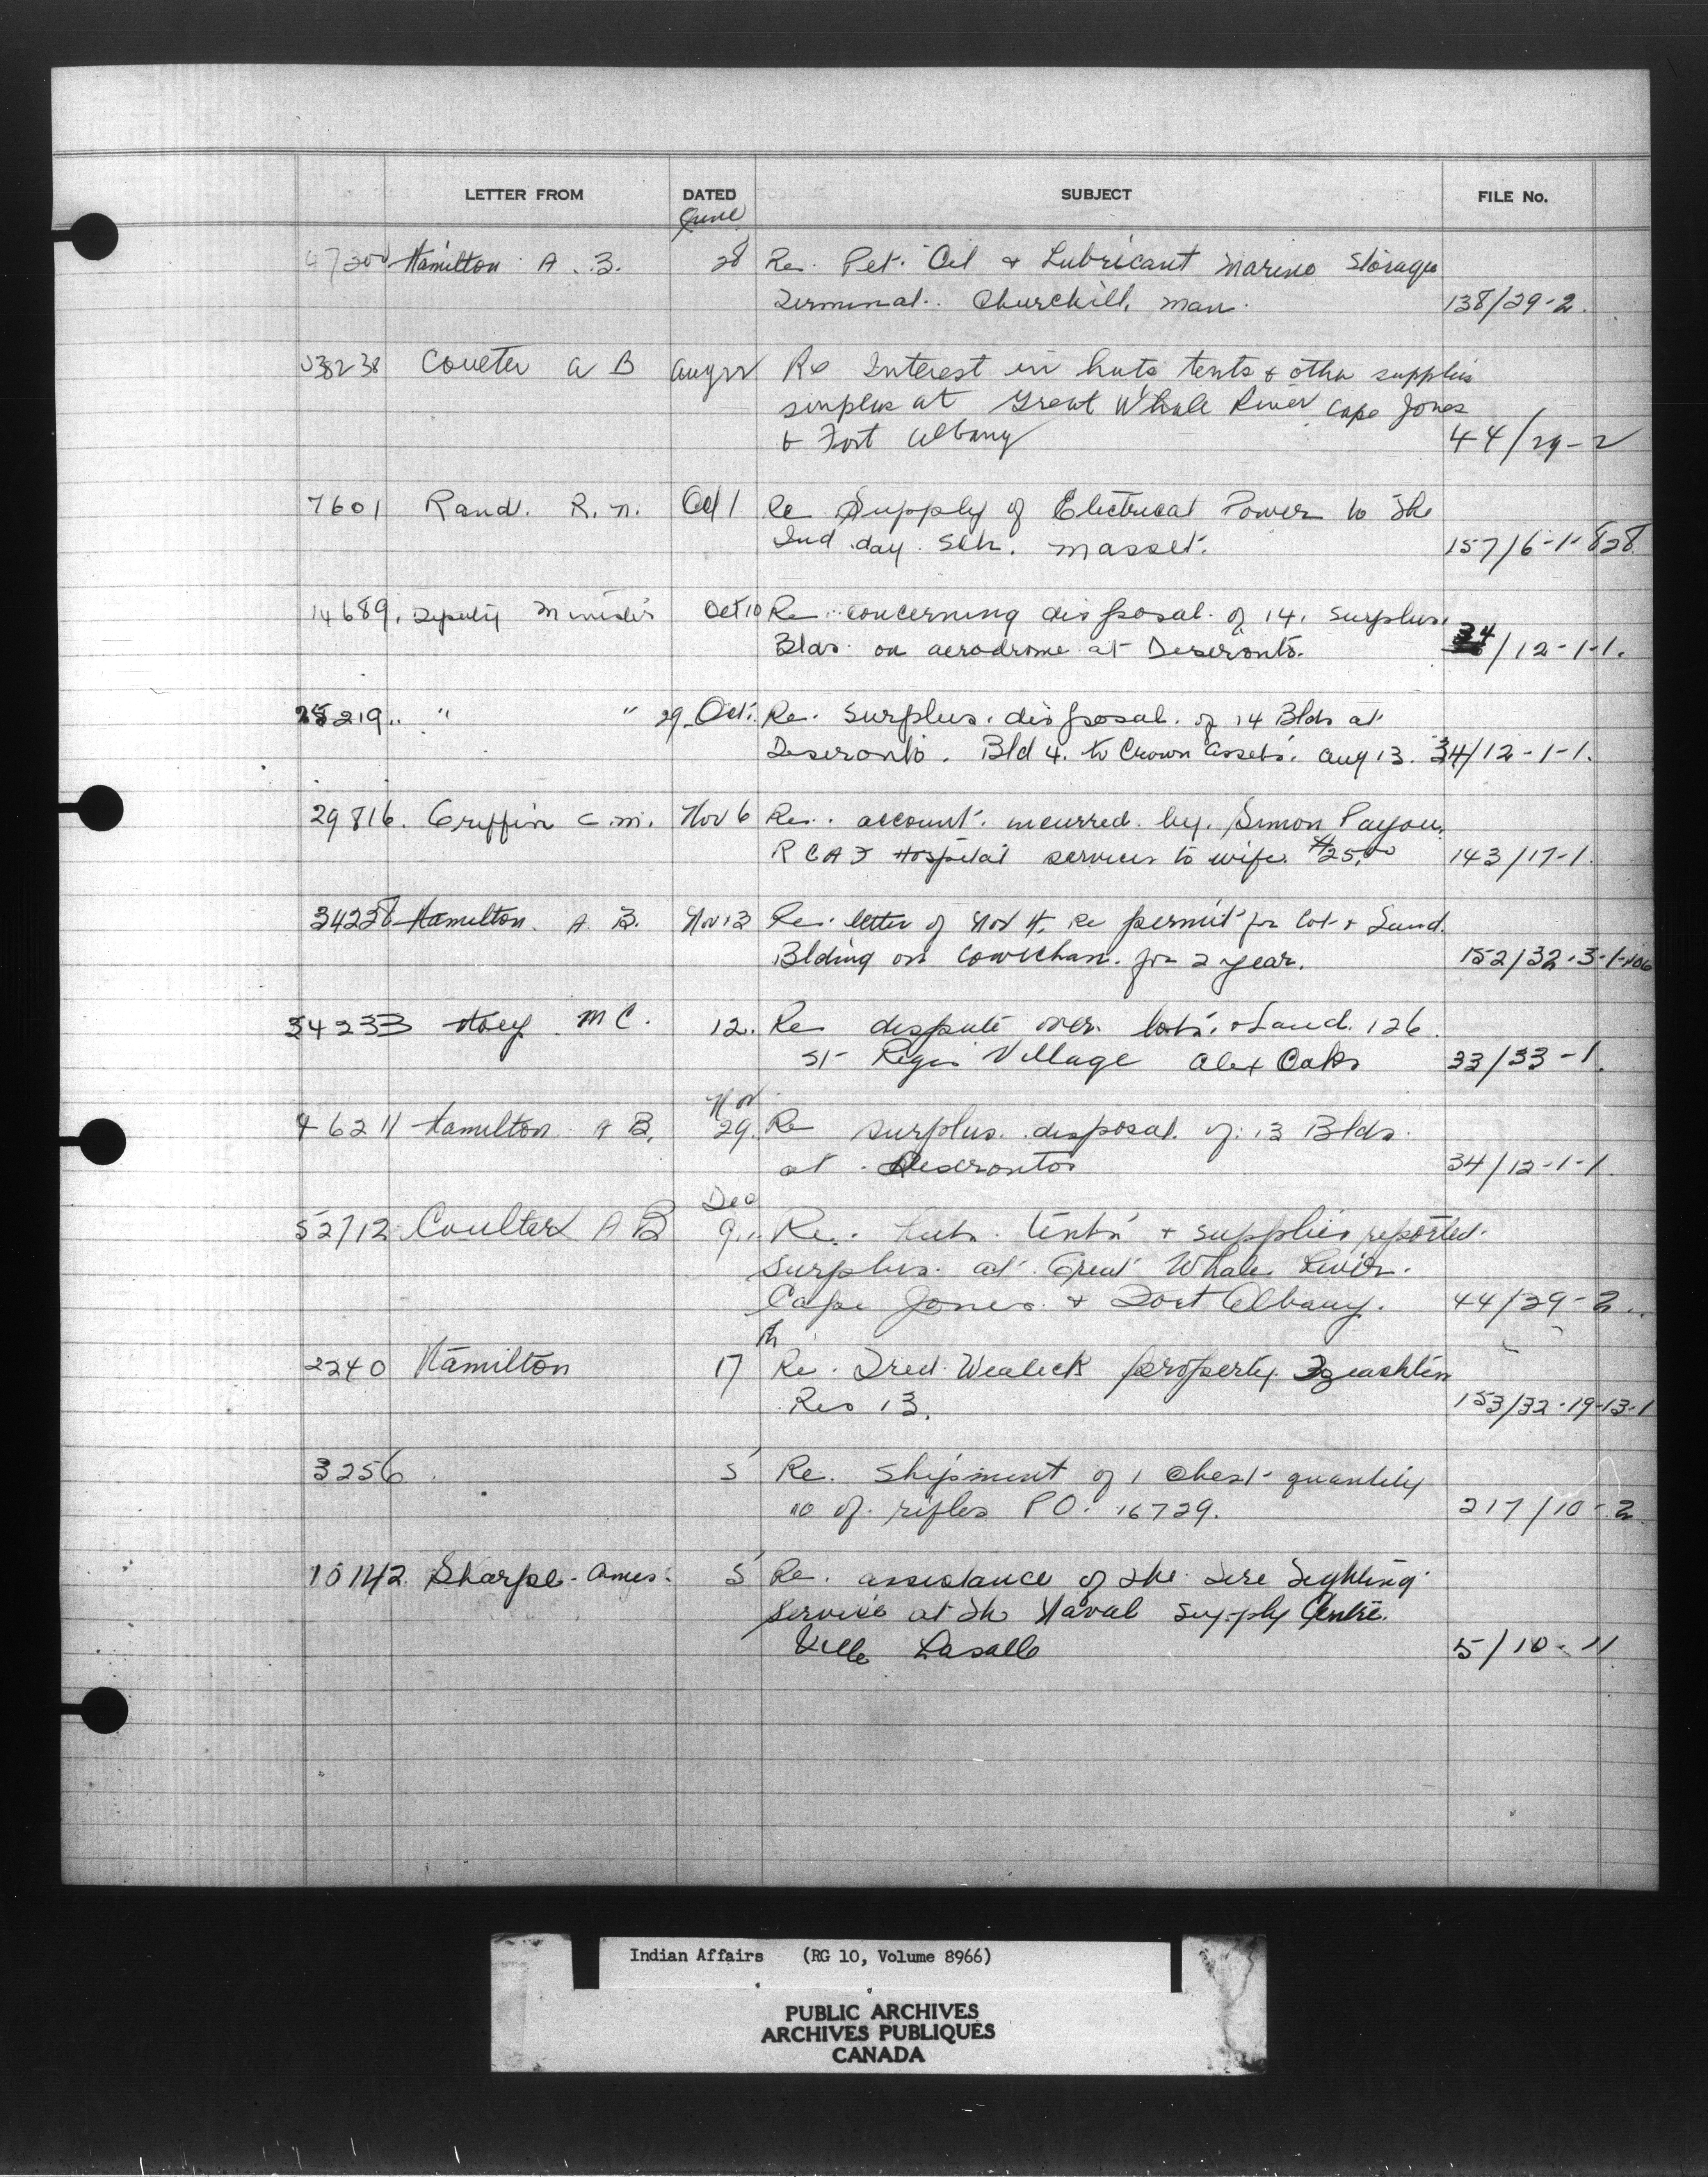 LETTER FROM DATED SUBJECT FILE No.
June
47300 Hamilton A. B. 28 Re. Pet. Oil & Lubricant Marine Storage
Terminal. Churchill, Man. 138/29-2.
Coulter A B Aug 22 Re Interest in huts tents & other supplies
surplus at Great Whale River Cape Jones
& Fort Albany 44/29-2
7601 Rand. R. N. Oct 1 Re Supply of Electrical Power to the
Ind. day. Sch. Masset. 157/6-1-828
14689. Deputy Minister Oct 10 Re. concerning disposal of 14. surplus.
Blds. on aerodrome at Deseronto. 34/12-1-1.
28219.. " " 29 Oct. Re. Surplus. disposal. of 14 Blds at
Deseronto. Bld 4. to Crown Assets. Aug 13. 34/12-1-1.
29816. Griffin C.M. Nov 6 Re. account. incurred. by. Simon Payou.
RCAF Hospital services to wife. $25.00 143/17-1.
34228 Hamilton. A. B. Nov 13 Re. letter of Nov 4. Re permit for Cot. &
Blding on Cowichan. for 2 year. 152/32-3-1-
34233 Hoey MC. 12. Re dispute over. lots. & Land. 126
St Regis Village Alex Oaks 33/33-1.
Nov
46211 Hamilton A B. 29. Re surplus. disposal. of. 13 Blds.
at Deseronto 34/12-1-1.
Dec
52712 Coulter A B 9.. Re. huts. tents & supplies reported.
surplus. at Great Whale River.
Cape Jones. & Fort Albany. 44/29-2..
2240 Hamilton 17th Re. Fred Wealick property.
Res 13. 153/32-19-13-1
3256. 5 Re. Shipment of 1 Chest quantity
10 of. rifles P.O. 16729. 217/10-2
10142 Sharpe. Ames. 5 Re. assistance of the Fire Fighting
Service at the Naval Supply Centre.
Ville Lasalle 5/10-11
Indian Affairs (RG 10, Volume 8966)
PUBLIC ARCHIVES
ARCHIVES PUBLIQUES
CANADA